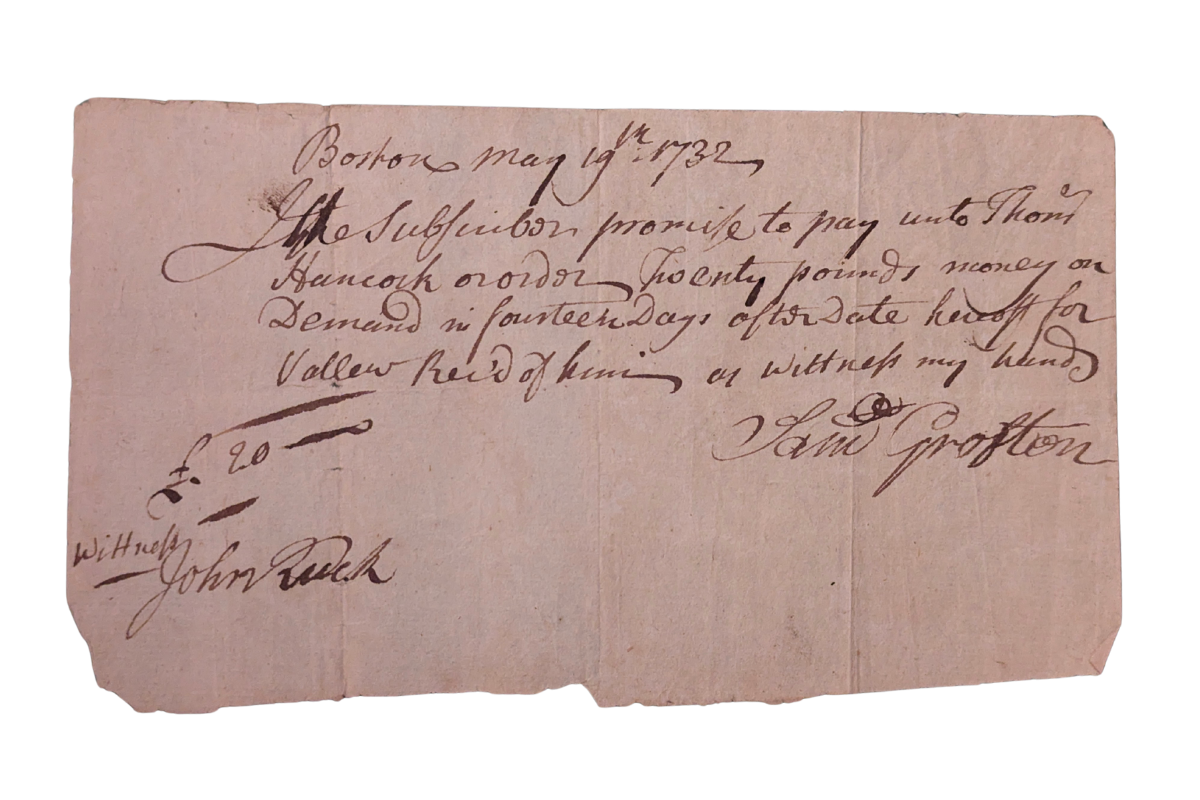 Boston May 19th. 1732
I the Subscriber promise to pay unto Thom.s
Hancock or order Twenty pounds money on
Demand in fourteen Days after Date hereoff for
Vallew Rec'd of him as Wittness my hand
Sam.ll Grofton
£. 20
Wittness
John Ruck